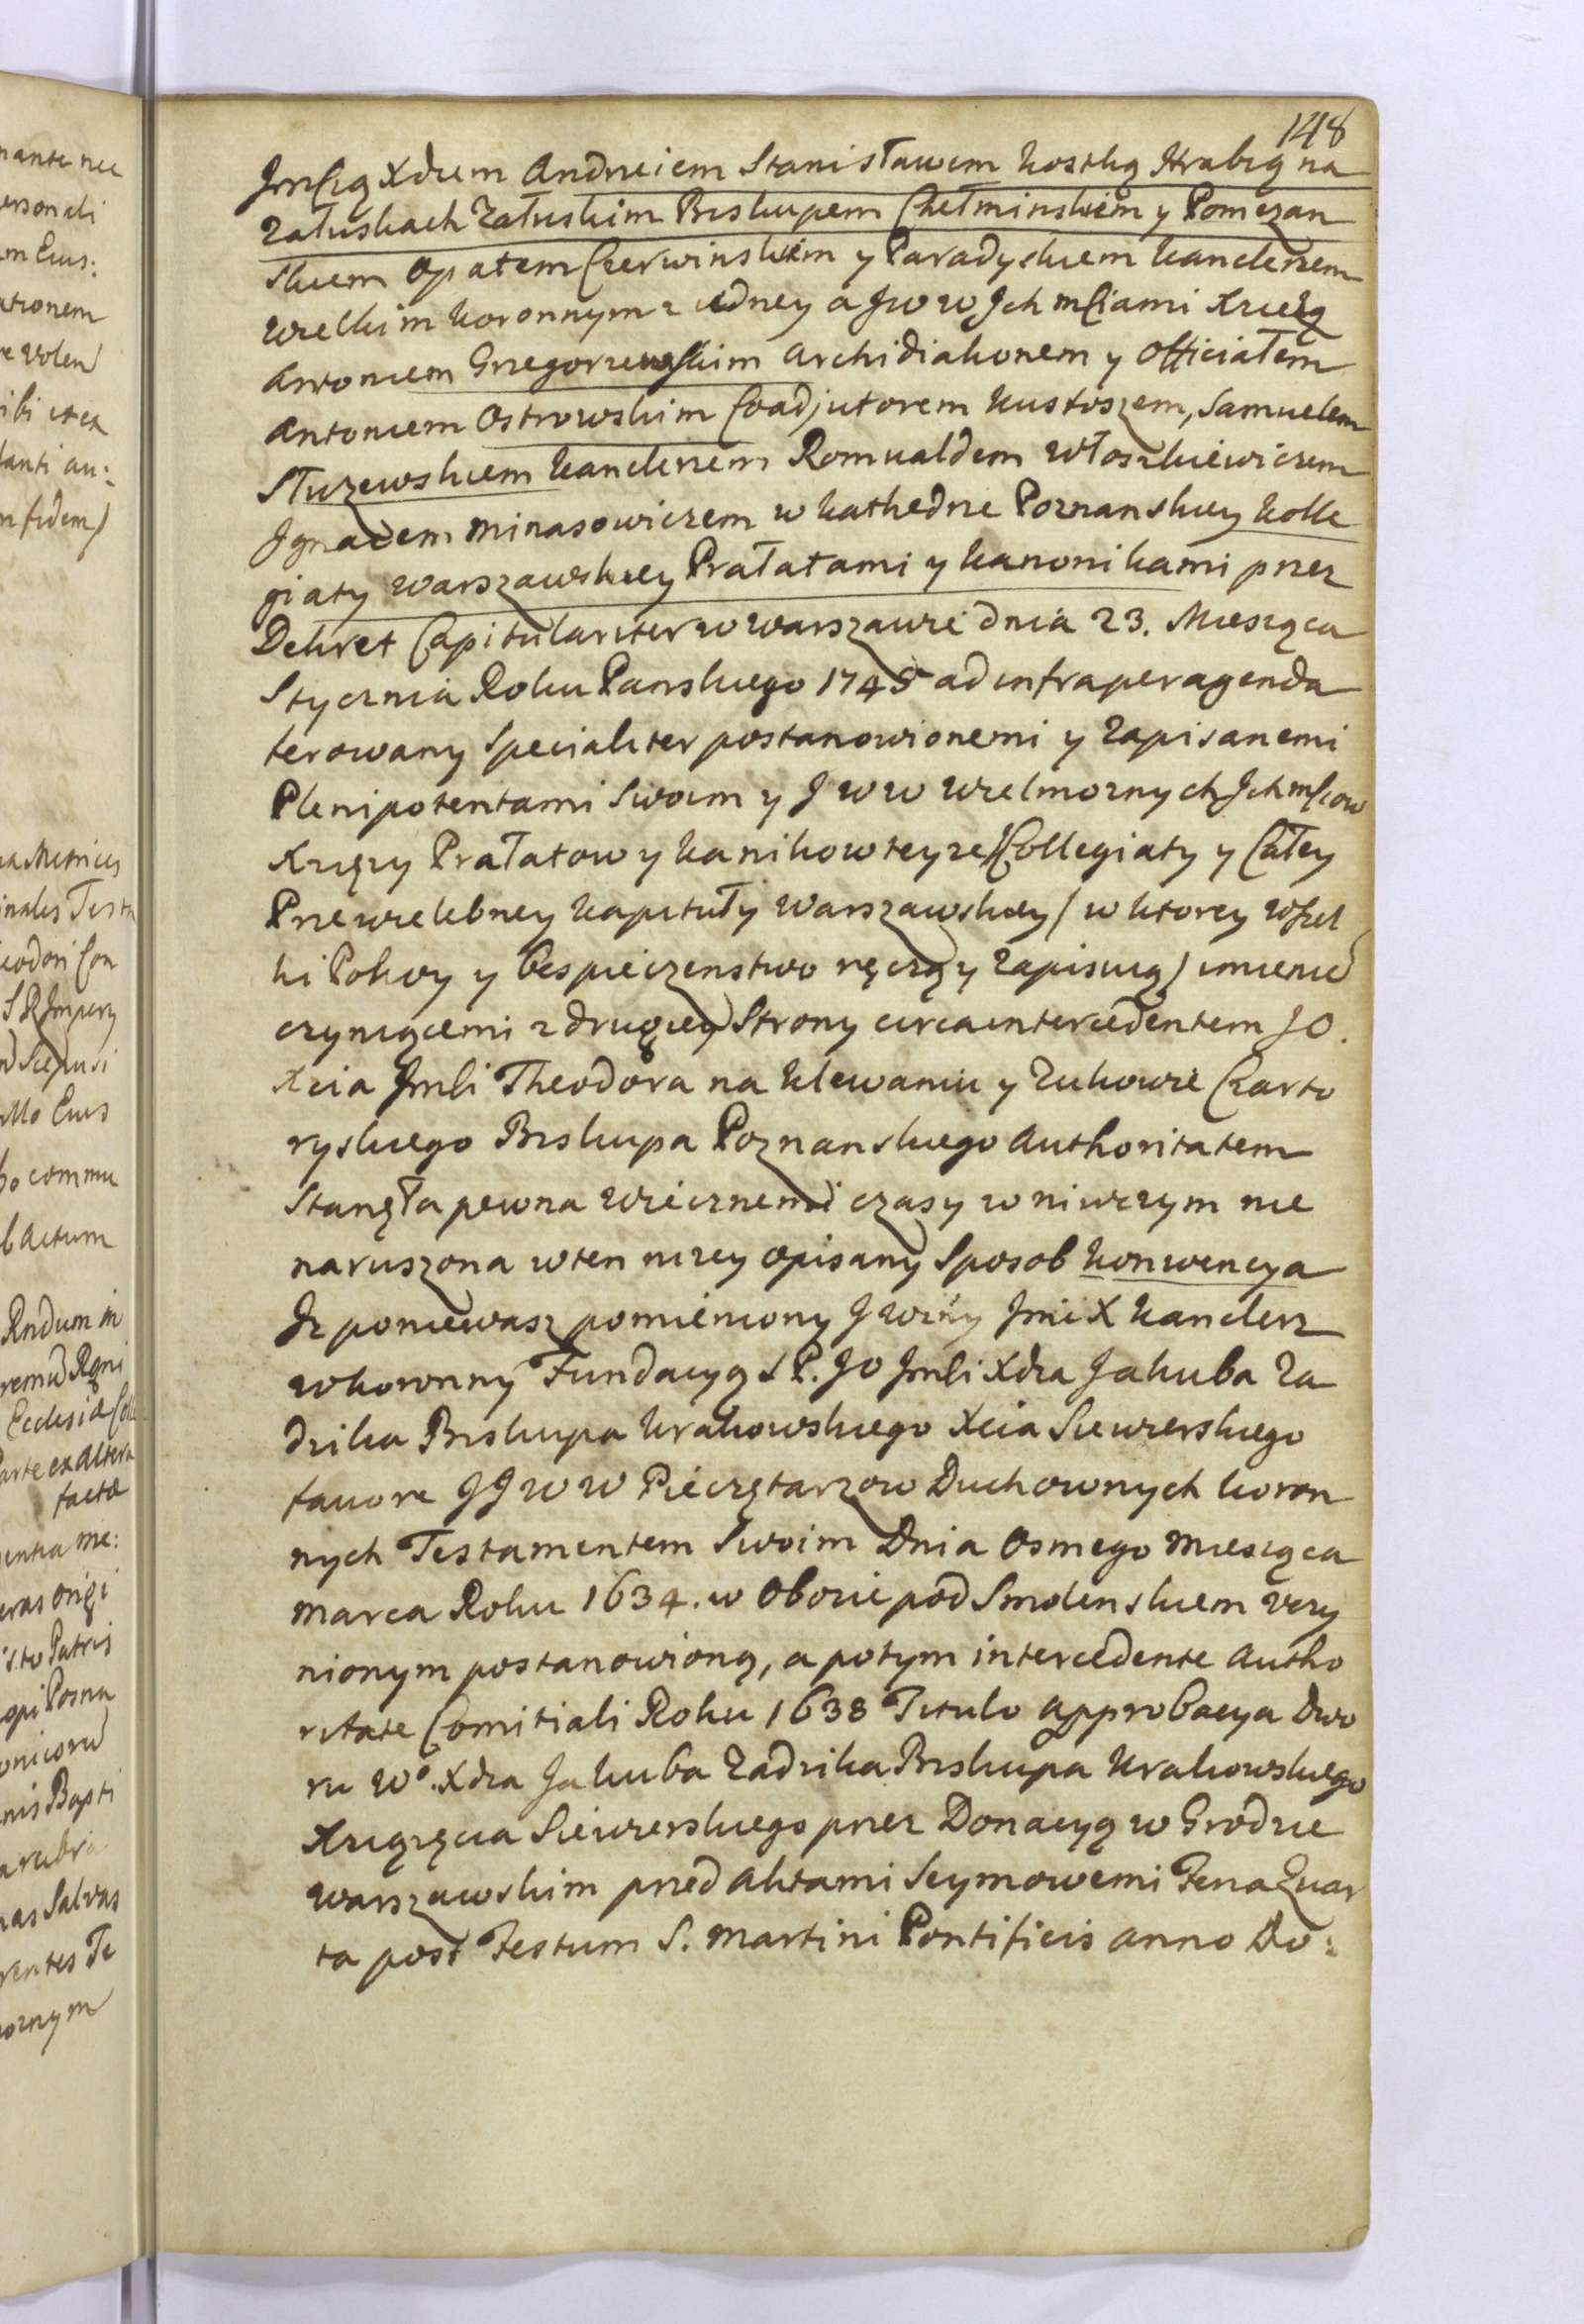 148
Jmścią Xdzem Andrzeiem Stanisławem Kostką Hrabią na
Załuskach Załuskim Biskupem Chełminskiem y Pomezan
skiem Opatem Czerwinskiem y Paradyskiem Kanclerzem
Wielkim Koronnym z iedney a JWW Jch mściami Xciężą
Antoniem Grzegorzewskim Archidiakonem y Officiałem
Antoniem Ostrowskim Coadjutorem Kustoszem, Samuelem
Stuzewskiem Kanclerzem Romualdem Włoszkiewiczem
Jgnacem Minasowiczem w Kathedrze Poznanskiey Kolle
giaty Warszawskiey Prałatami y Kanonikami przez
Dekret Capitulariter w Warszawie dnia 23. Miesiąca
Stycznia Roku Panskiego 1745 ad infra peragenda
ferowany specialiter postanowionemi y zapisanemi
Plenipotentami Swoim y JWW Wielmoznych Jchmściow
Xięzy Prałatow y Kanikow teyze Collegiaty y Całey
Przewielebney Kapituły Warszawskiey / w ktorey wszel
ki Pokoy y bespieczenstwo ręczą y zapisuią / imieniē
czyniącemi z drugiey Strony circa intercedentem JO.
Xcia Jmści Theodora na Klewaniu y Zukowie Czarto
ryskiego Biskupa Poznanskiego Authoritatem
Stanęła pewna wiecznemi czasy w niwczym nie
naruszona w ten nizey opisany Sposob Konwencya
Jz poniewasz pomieniony JWiny Jmć X Kanclerz
W Koronny Fundacyą S P. JO Jmści Xdza Jakuba Za
dzika Biskupa Krakowskiego Xcia Siewierskiego
favore JJWW Pieczętarzow Duchownych Koron
nych Testamentem Swoim Dnia Osmego Miesiąca
Marca Roku 1634. w Obozie pod Smolenskiem uczy
nionym postanowioną, a potym intercedente Autho
ritate Comitiali Roku 1638 Titulo Approbacya Dwo
ru W°. Xdza Jakuba Zadzika Biskupa Krakowskiego
Xiąząęcia Siewierskiego przez Donacyą w Grodzie
Warszawskim przed Aktami Seymowemi Feria Quar
ta post Festum S. Martini Pontificis anno Do: